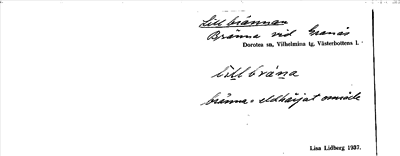 Lillbrännan
Bränna vid Granås
Dorotea sn, Vilhelmina tg, Västerbottens l.
lillbräna
bränna = eldhärjat område
Lisa Lidberg 1937.